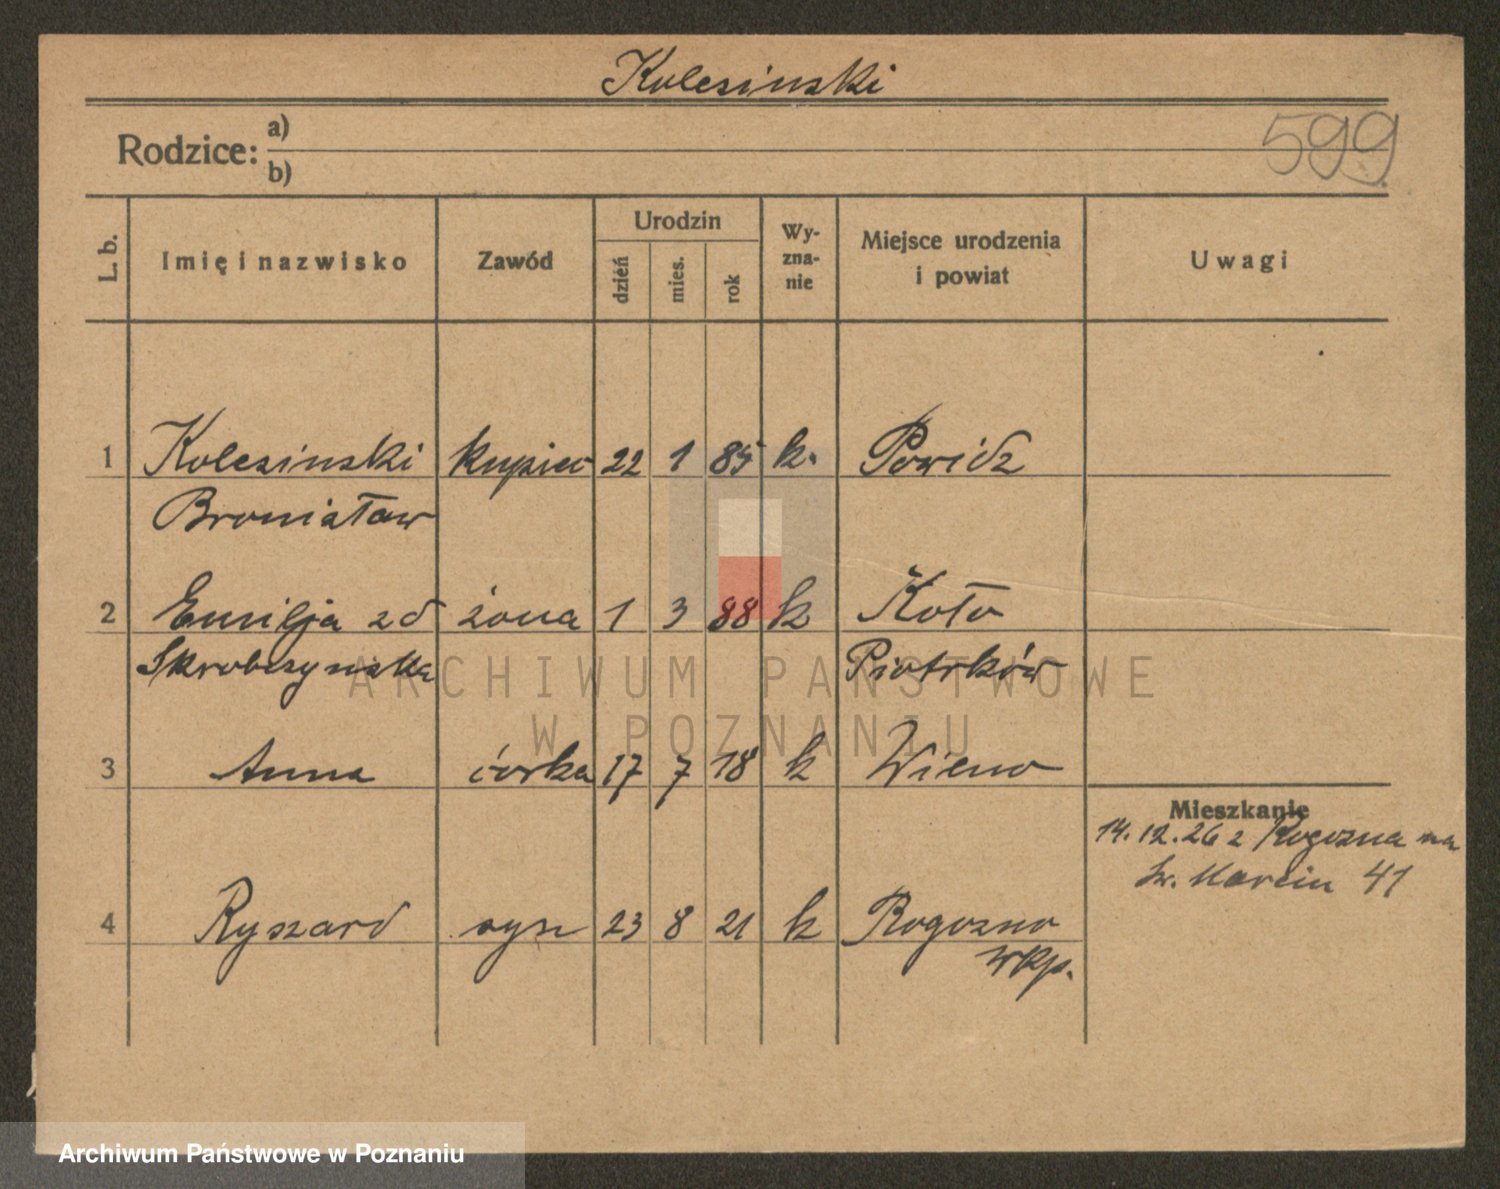 Kolesinski
Rodzice: a)
b)
599
L. b. Imię i nazwisko Zawód Urodzin dzień mies. rok Wy-zna-nie Miejsce urodzenia i powiat Uwagi
1 Kolesinski kupiec 22 1 85 k. Powidz
Bronisław
2 Emilja zd żona 1 3 88 k Koło
Skrobiszynska Piotrków
3 Anna córka 17 7 18 k
Mieszkanie
14.12.26 z Rogozna na
Św. Marcin 41
4 Ryszard syn 23 8 21 k Rogozno
Wlkp.
ARCHIWUM PAŃSTWOWE
W POZNANIU
Archiwum Państwowe w Poznaniu